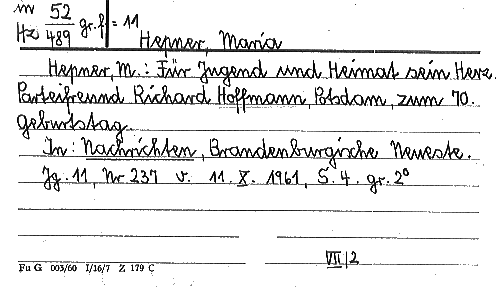 in 52/489 gr.f = 11
Hz
Hepner, Maria
Hepner, M.: Für Jugend und Heimat sein Herz.
Parteifreund Richard Hoffmann, Potsdam, zum 70.
Geburtstag.
In: Nachrichten, Brandenburgische Neueste.
Jg. 11, Nr. 237 v. 11. X. 1961, S. 4. gr. 2°
VII/2
Fu G 003/60 I/16/7 Z 179 C